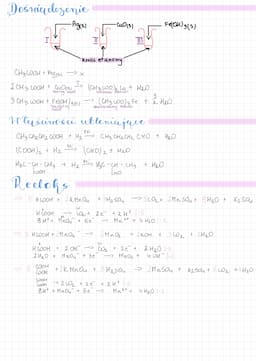 Doświadczenie
Ag(s) CuO(s) Fe(OH)3(s)
I II III
kwas etanowy
CH3COOH + Ag(s) → X
2 CH3COOH + CuO(s) → (CH3COO)2Cu + H2O
3 CH3COOH + Fe(OH)3(s) → (CH3COO)3Fe + 3 H2O
Właściwości utleniające
CH3CH2CH2COOH + H2 → CH3CH2CH2CHO + H2O
(COOH)2 + H2 → (CHO)2 + H2O
COOH CHO
Redoks
HCOOH + KMnO4 + H2SO4 → CO2 + MnSO4 + H2O + K2SO4
HCOOH → CO2 + 2e⁻ + 2H⁺
8H⁺ + MnO4⁻ + 5e⁻ → Mn²⁺ + 4H2O
HCOOH + 2OH⁻ → CO2 + 2e⁻ + 2H2O
2H2O + MnO4⁻ + 3e⁻ → MnO2 + 4OH⁻
COOH
COOH + KMnO4 + H2SO4 → MnSO4 + K2SO4 + CO2 + H2O
COOH
COOH → 2CO2 + 2e⁻ + 2H⁺
8H⁺ + MnO4⁻ + 5e⁻ → Mn²⁺ + 4H2O